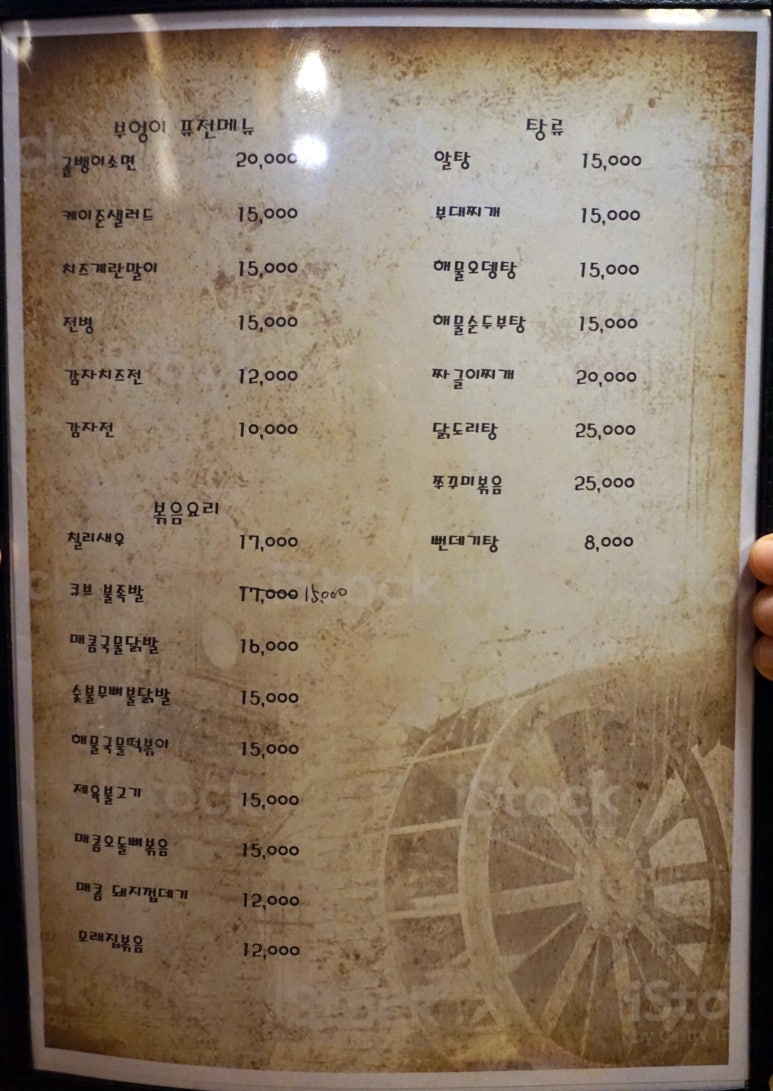 부엉이 퓨전메뉴
골뱅이소면 20,000
케이준샐러드 15,000
치즈계란말이 15,000
전병 15,000
감자치즈전 12,000
감자전 10,000
볶음요리
칠리새우 17,000
큐브 불족발 17,000 15,000
매콤국물닭발 16,000
숯불무뼈불닭발 15,000
해물국물떡볶이 15,000
제육불고기 15,000
매콤오돌뼈볶음 15,000
매콤 돼지껍데기 12,000
모래집볶음 12,000
탕류
알탕 15,000
부대찌개 15,000
해물오뎅탕 15,000
해물순두부탕 15,000
짜글이찌개 20,000
닭도리탕 25,000
쭈꾸미볶음 25,000
뻔데기탕 8,000
iStock
iStock
iStock
iStock